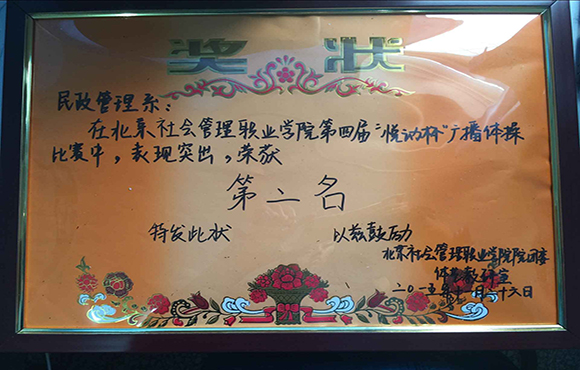 奖状
民政管理系：
在北京社会管理职业学院第四届“悦动杯”广播体操
比赛中，表现突出，荣获
第二名
特发此状 以兹鼓励
北京社会管理职业学院院团委
体育教研室
二〇一五年 月二十六日